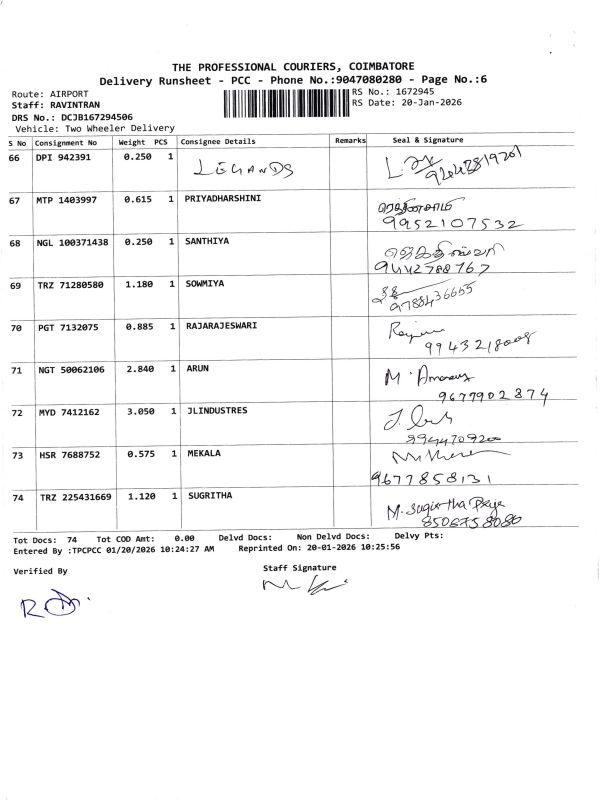 THE PROFESSIONAL COURIERS, COIMBATORE
Delivery Runsheet - PCC - Phone No.:9047080280 - Page No.:6
Route: AIRPORT
Staff: RAVINTRAN
DRS No.: DCJB167294506
Vehicle: Two Wheeler Delivery
RS No.: 1672945
RS Date: 20-Jan-2026
S No Consignment No Weight PCS Consignee Details Remarks Seal & Signature
66 DPI 942391 0.250 1 LEGANDS
67 MTP 1403997 0.615 1 PRIYADHARSHINI
9952107532
68 NGL 100371438 0.250 1 SANTHIYA
9442788767
69 TRZ 71280580 1.180 1 SOWMIYA
9788436655
70 PGT 7132075 0.885 1 RAJARAJESWARI
9943218008
71 NGT 50062106 2.840 1 ARUN M.
9677902874
72 MYD 7412162 3.050 1 JLINDUSTRES
9944709200
73 HSR 7688752 0.575 1 MEKALA
9677858131
74 TRZ 225431669 1.120 1 SUGRITHA M. Sugirtha Priya
8506758080
Tot Docs: 74 Tot COD Amt: 0.00 Delvd Docs: Non Delvd Docs: Delvy Pts:
Entered By :TPCPCC 01/20/2026 10:24:27 AM Reprinted On: 20-01-2026 10:25:56
Verified By Staff Signature